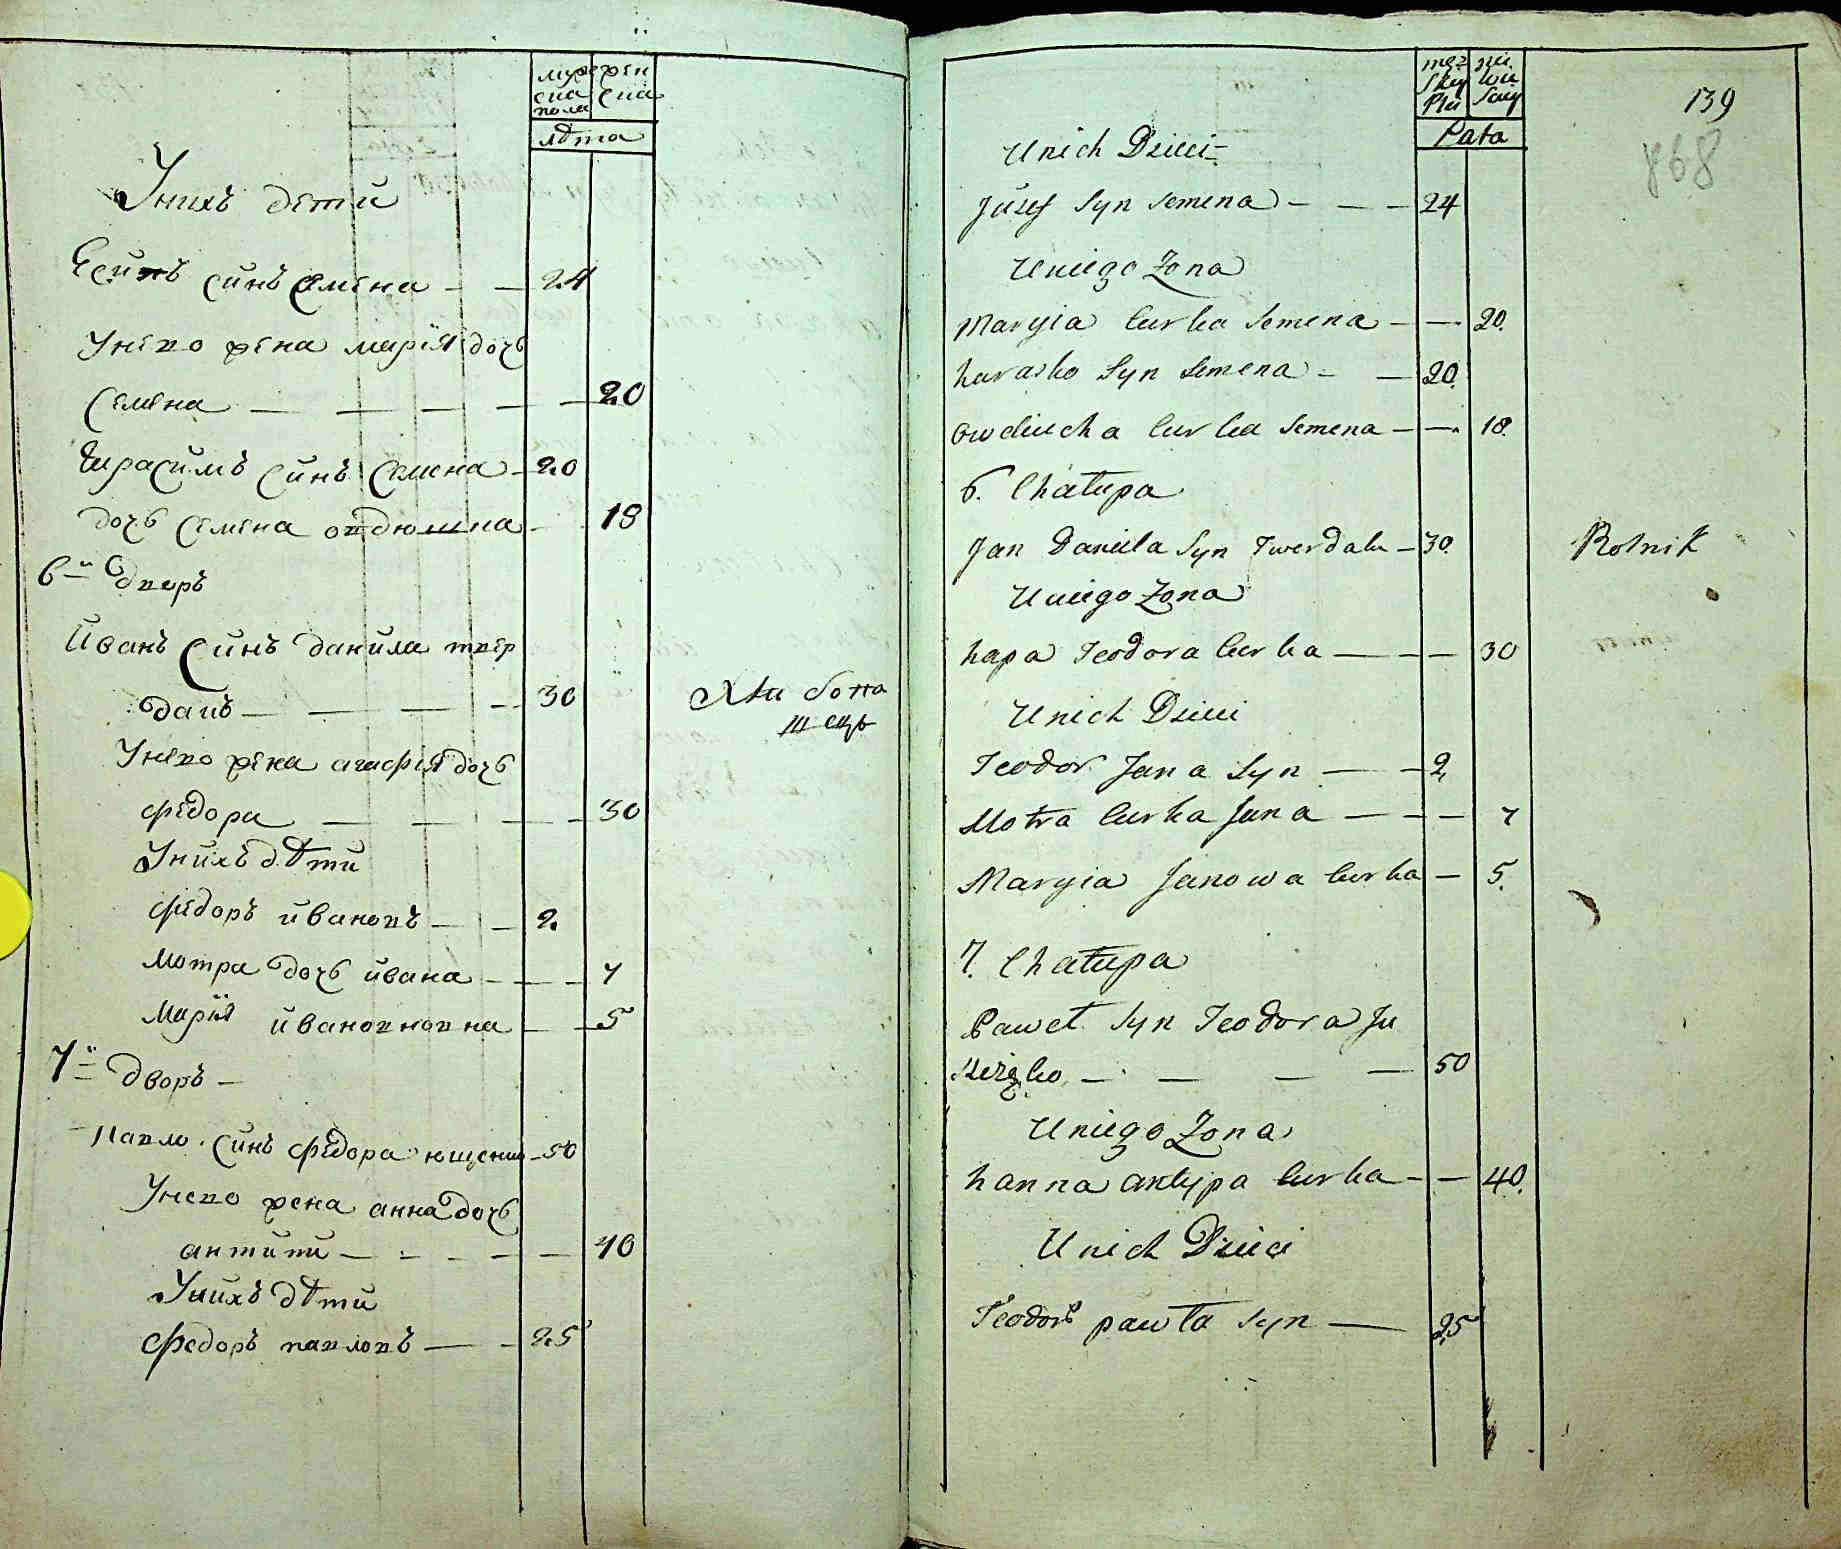 муже жен
ска ска
пола
лѣта
Унихъ дети
Есипъ синъ Семена — — 24
Унего жена мария дочь
Семена — — — — — 20
Герасимъ синъ Семена - 20
дочь семена овдюшка - 18
6й дворъ
Иванъ Синъ данила твер
далъ — — — — 30
Хлѣбопа
шецъ
Унего жена агафия дочь
федора — — — — 30
Унихъ дѣти
федоръ ивановъ — — 2
мотра дочь ивана — — — 7
Мария ивановновна — — 5
7й дворъ —
павло синъ федора ющенко - 50
Унего жена анна дочь
антипи — — — — — 40
Унихъ дѣти
федоръ павловъ — — 25
męż nie
skiy wie
Płei sciey
Łata
139
868
Unich Dzieci
Júzef Syn Semena — — — 24
Uniego Zona
Maryia Curka Semena — — 20.
haraśko Syn Semena — — 20.
owdiucha Curka Semena — — 18.
6. Chałupa
Jan Daniela Syn Twerdału — 30.
Rolnik
Uniego Zona
hapa Teodora Curka — — — 30
Unich Dzieci
Teodor Jana Syn — — 2
Motra Curka Jana — — — 7
Maryia Janowa Curka — 5.
7. Chałupa
Paweł Syn Teodora Ju
— — — — 50
Uniego Zona
hanna antypa Curka — — 40.
Unich Dzieci
Teodor pawła Syn — 25